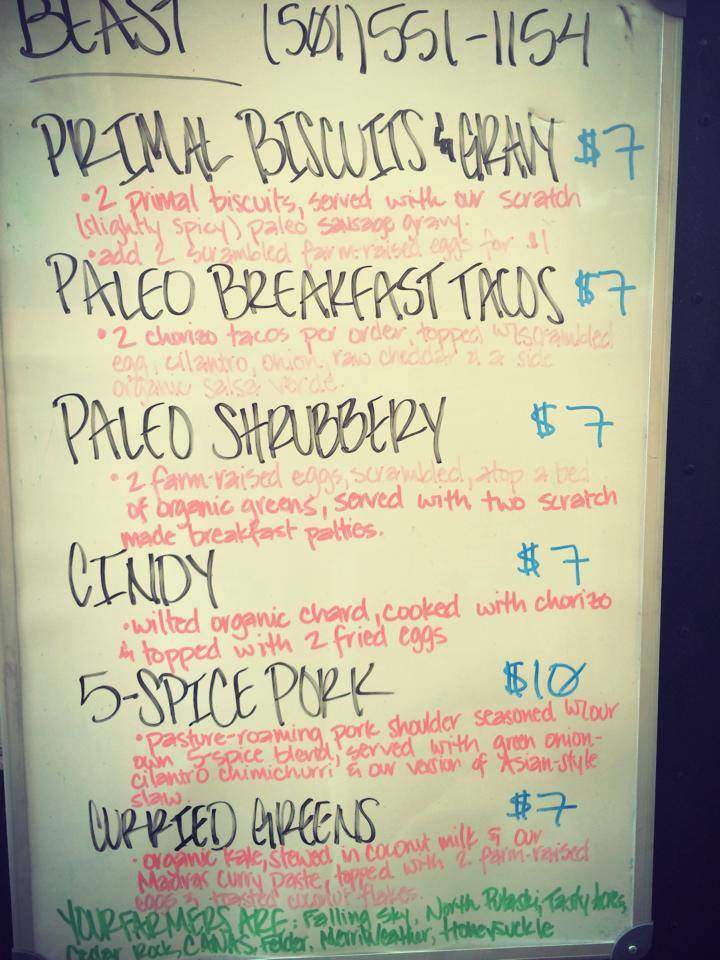 BEAST (501)551-1154
PRIMAL BISCUITS & GRAVY $7
• 2 primal biscuits, served with our scratch
(slightly spicy) paleo sausage gravy.
• add 2 scrambled farm-raised eggs for $1
PALEO BREAKFAST TACOS $7
• 2 chorizo tacos per order, topped w/scrambled
egg, cilantro, onion, raw cheddar & a side
organic salsa verde.
PALEO SHRUBBERY $7
• 2 farm-raised eggs, scrambled, atop a bed
of organic greens, served with two scratch
made breakfast patties.
CINDY $7
• wilted organic chard, cooked with chorizo
& topped with 2 fried eggs
5-SPICE PORK $10
• pasture-roaming pork shoulder seasoned w/our
own 5-spice blend, served with green onion-
cilantro chimichurri & our version of Asian-style
slaw
CURRIED GREENS $7
• organic kale, stewed in coconut milk & our
Madras curry paste, topped with 2 farm-raised
eggs & toasted coconut flakes.
YOUR FARMERS ARE: Falling Sky, North Pulaski, Tasty Acres,
Cedar Rock, CAWAS, Felder, MerriWeather, Honeysuckle